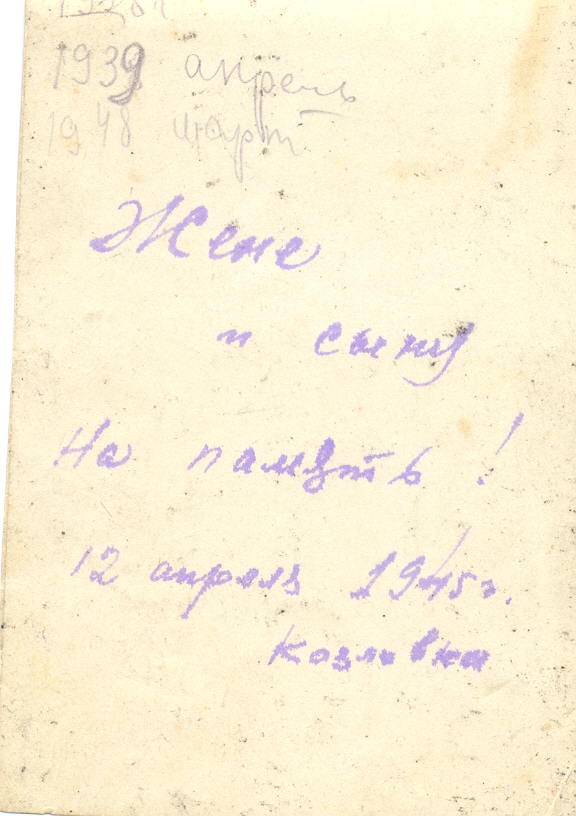 1939 апрель
1948 март
Жене
и сыну
На память!
12 апреля 1945г.
Козловка